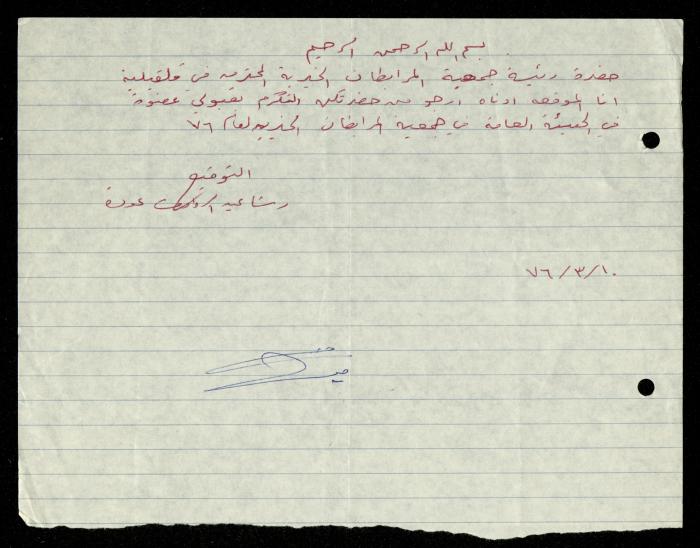 بسم الله الرحمن الرحيم
حضرة رئيسة جمعية المرابطات الخيرية المحترمه في قلقيلية
انا الموقعه ادناه ارجو من حضرتكن التكرم بقبولي عضوة
في الهيئة العامة في جمعية المرابطات الخيريه لعام ٧٦
التوقيع
رشا عبد الرؤوف عودة
٧٦/٣/١٠